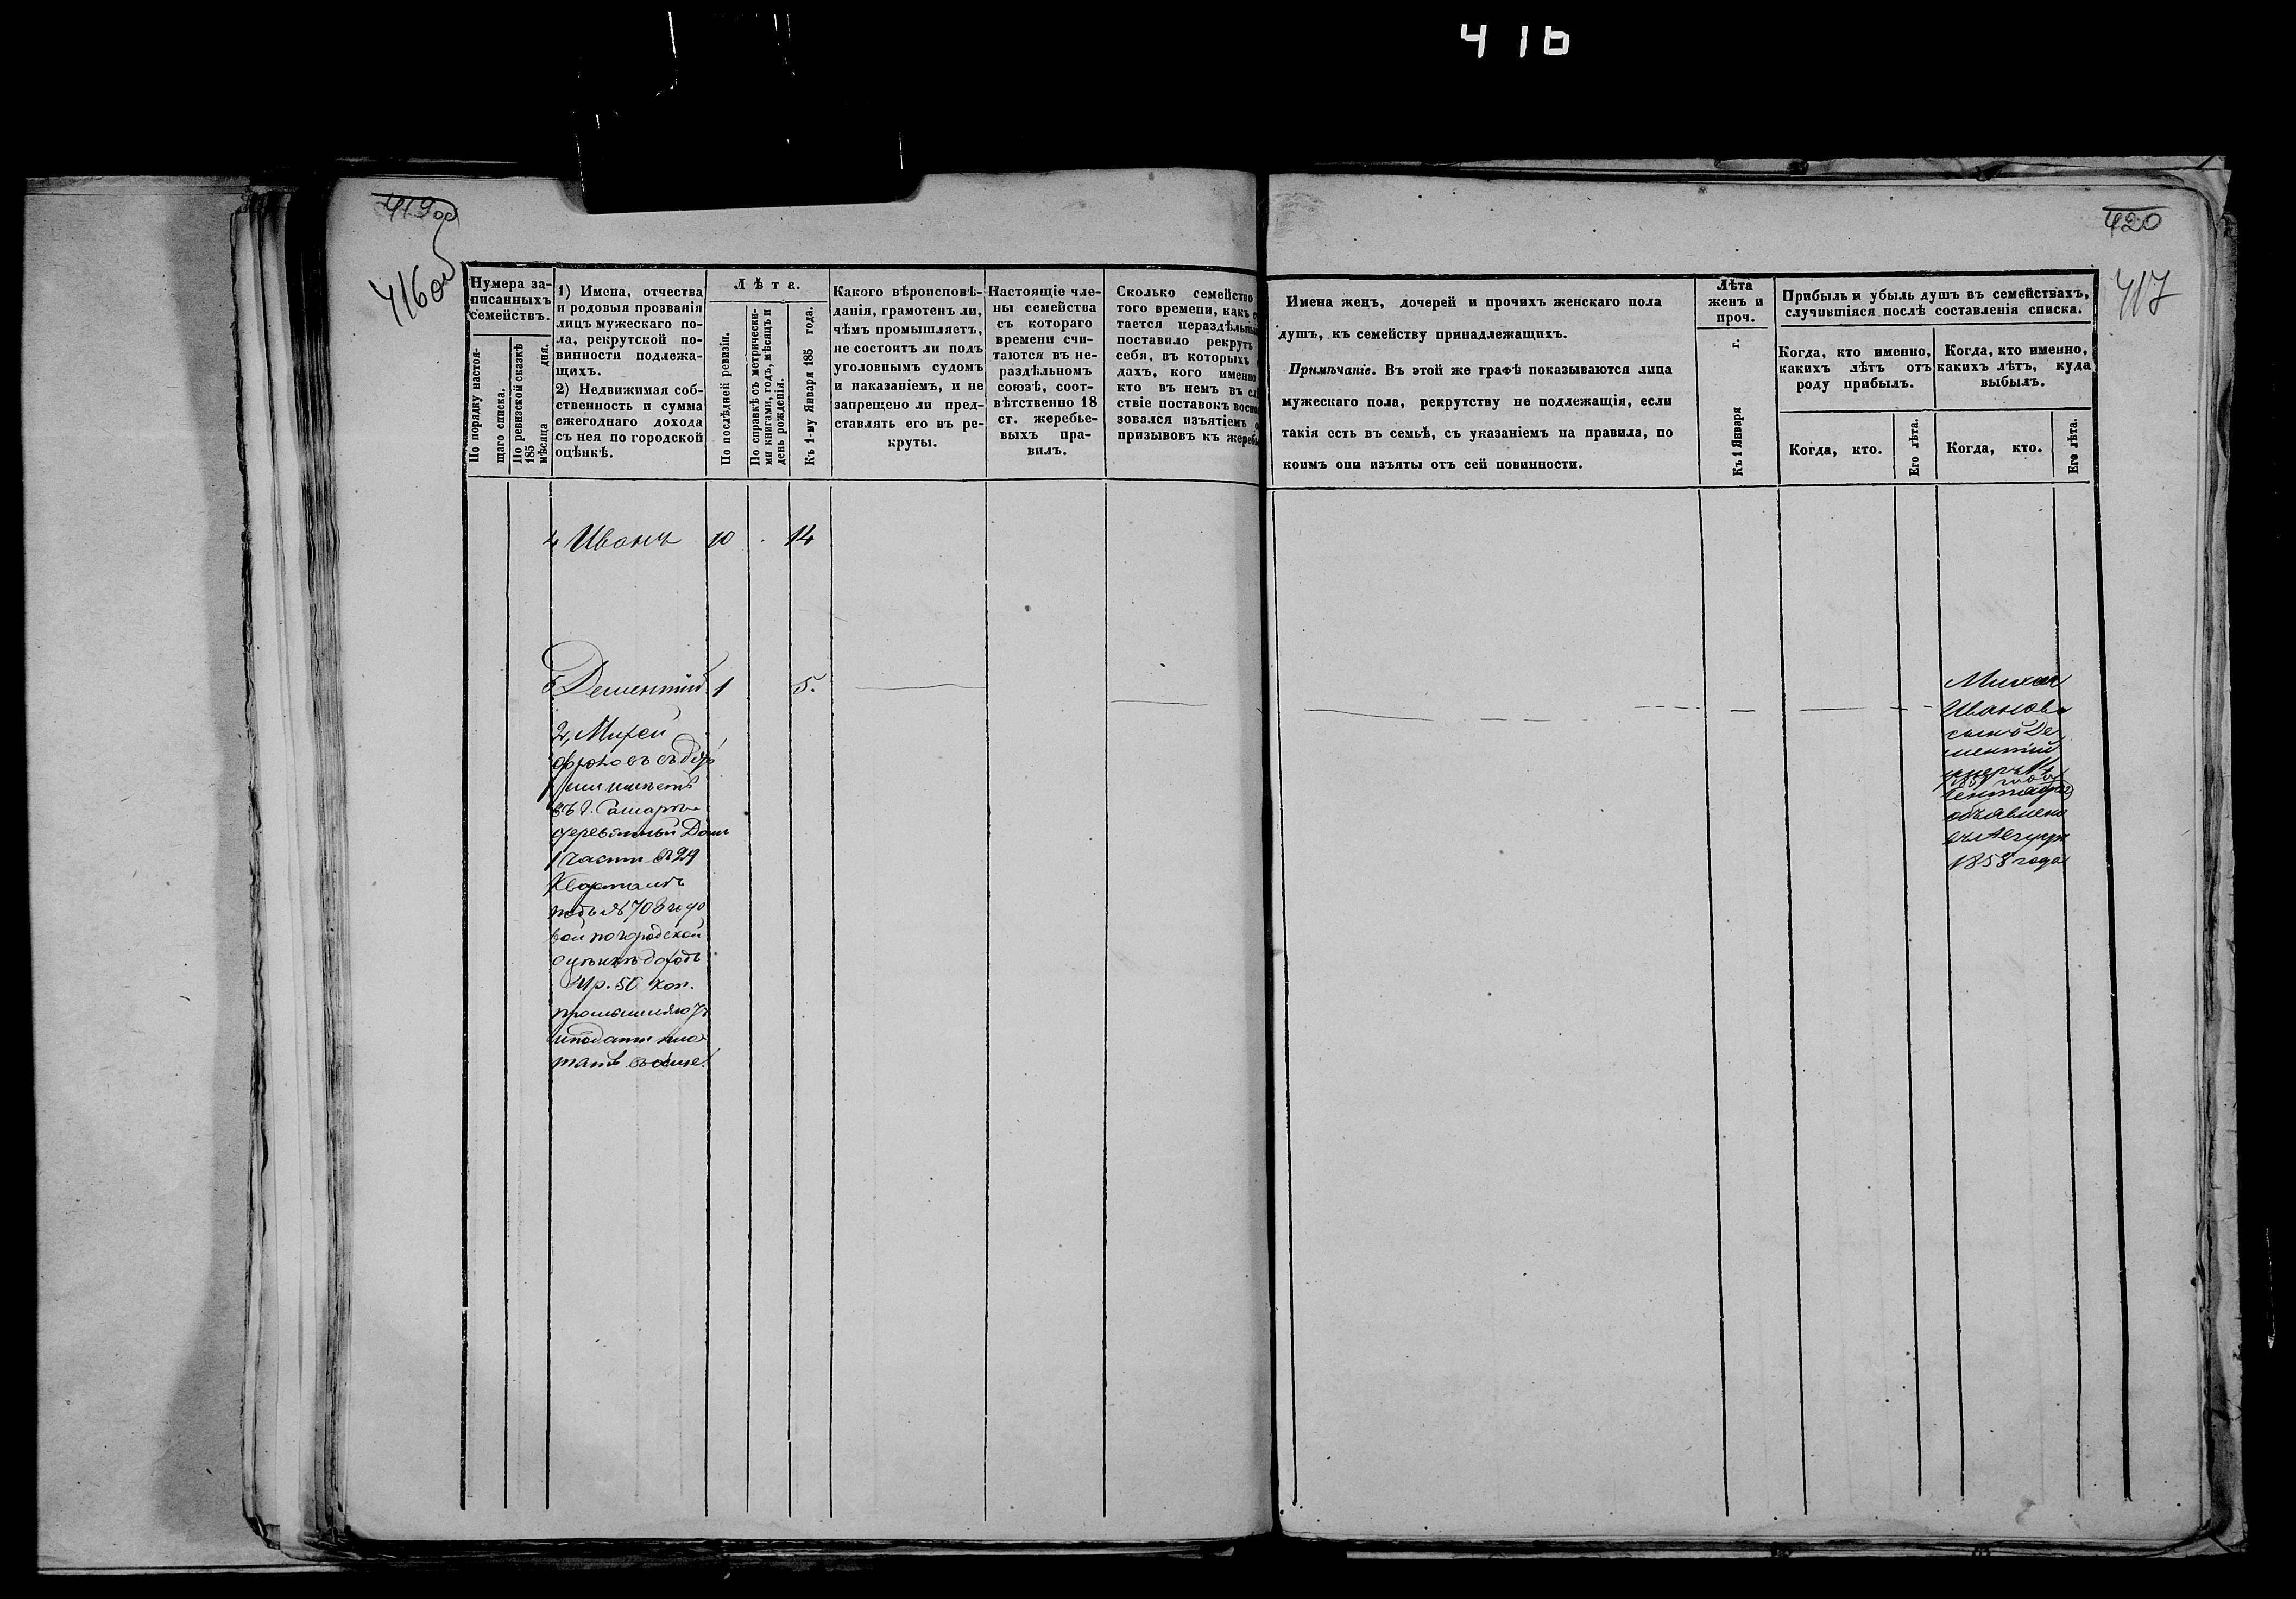 416
419 об
416 об
Нумера за-
писанныхъ
семействъ.
По порядку настоя-
щаго списка.
По ревизской сказкѣ
185
мѣсяца дня.
1) Имена, отчества
и родовыя прозванія
лицъ мужескаго по-
ла, рекрутской по-
винности подлежа-
щихъ.
2) Недвижимая соб-
ственность и сумма
ежегоднаго дохода
съ нея по городской
оцѣнкѣ.
Лѣта.
По послѣдней ревизіи.
По справкѣ съ метрически-
ми книгами, годъ, мѣсяцъ и
день рожденія.
Къ 1-му Января 185 года.
Какого вѣроисповѣ-
данія, грамотенъ ли,
чѣмъ промышляетъ,
не состоитъ ли подъ
уголовнымъ судомъ
и наказаніемъ, и не
запрещено ли пред-
ставлять его въ ре-
круты.
Настоящіе чле-
ны семейства
съ котораго
времени счи-
таются въ не-
раздѣльномъ
союзѣ, соот-
вѣтственно 18
ст. жеребье-
выхъ пра-
вилъ.
Сколько семейство
того времени, какъ
тается нераздѣльны
поставило рекрутъ
себя, въ которыхъ
дахъ, кого именно
кто въ немъ въ слѣ
ствіе поставокъ воспо
зовался изъятіемъ о
призывовъ къ жереб
4 Иванъ 10 . 14
5 Дементій 1 5.
2, Михей
въ г. Самарѣ
деревянный Домъ
1 части въ 29
Кварталѣ
подъ № 708 годо
вой по городской
оцѣнкѣ доходъ
4 р. 50 коп.
промышляютъ
и подати пла
тятъ
420
417
Имена женъ, дочерей и прочихъ женскаго пола
душъ, къ семейству принадлежащихъ.
Примѣчаніе. Въ этой же графѣ показываются лица
мужескаго пола, рекрутству не подлежащія, если
такія есть въ семьѣ, съ указаніемъ на правила, по
коимъ они изъяты отъ сей повинности.
Лѣта
женъ и
проч.
Къ 1 Января г.
Прибыль и убыль душъ въ семействахъ,
случившіяся послѣ составленія списка.
Когда, кто именно,
какихъ лѣтъ отъ
роду прибылъ.
Когда, кто именно,
какихъ лѣтъ, куда
выбылъ.
Когда, кто.
Его лѣта.
Когда, кто.
Его лѣта.
Иванова
сынъ Де
ментій
умеръ
объявлено
въ Августѣ
1858 года